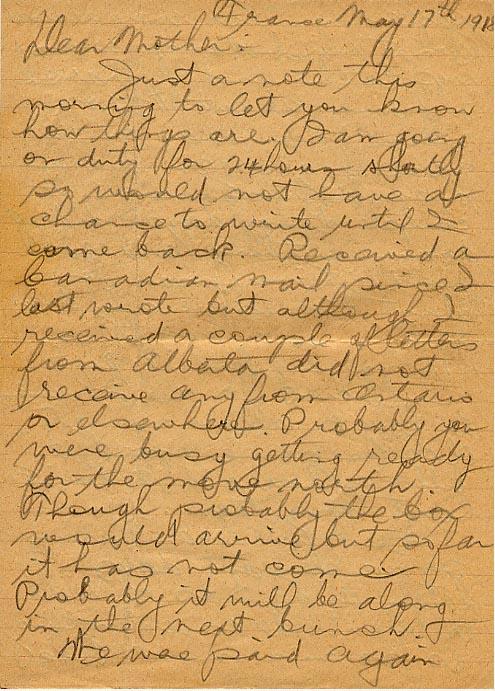 France May 17th 191
Dear Mother:
Just a note this
morning to let you know
how things are. I am going
on duty for 24 hours shortly
so would not have a
chance to write until I
come back. Received a
Canadian mail since I
last wrote but although I
received a couple of letters
from Alberta did not
receive any from Ontario
or elsewhere. Probably you
were busy getting ready
for the move north.
Though probably the box
would arrive but so far
it has not come.
Probably it will be along
in the next bunch.
We were paid again